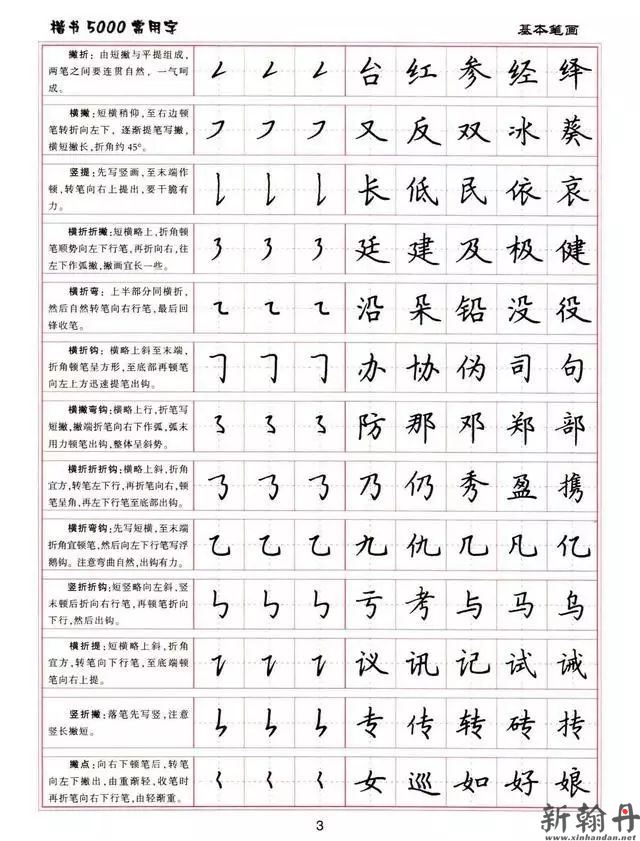 楷书5000常用字
基本笔画
撇折：由短撇与平提组成，
两笔之间要连贯自然，一气呵
成。
台 红 参 经 绎
横撇：短横稍仰，至右边顿
笔转折向左下，逐渐提笔写撇，
横短撇长，折角约45°。
又 反 双 冰 葵
竖提：先写竖画，至末端作
顿，转笔向右上提出，要干脆有
力。
长 低 民 依 哀
横折折撇：短横略上，折角顿
笔顺势向左下行笔，再折向右，往
左下作弧撇，撇画宜长一些。
廷 建 及 极 健
横折弯：上半部分同横折，
然后自然转笔向右行笔，最后回
锋收笔。
沿 朵 铅 没 役
横折钩：横略上斜至末端，
折角顿笔呈方形，至底部再顿笔
向左上方迅速提笔出钩。
办 协 伪 司 句
横撇弯钩：横略上行，折笔写
短撇，撇端折笔向右下作弧，弧末
用力顿笔出钩，整体呈斜势。
防 那 邓 郑 部
横折折折钩：横略上斜，折角
宜方，转笔左下行，再折笔向右，顿
笔呈角，再左下行笔至底部出钩。
乃 仍 秀 盈 携
横折弯钩：先写短横，至末端
折角宜顿笔，然后向左下行笔写浮
鹅钩。注意弯曲自然，出钩有力。
九 仇 几 凡 亿
竖折折钩：短竖略向左斜，竖
末顿后折向右行笔，再顿笔折向
下行，然后出钩。
亏 考 与 马 乌
横折提：短横略上斜，折角
宜方，转笔向下行笔，至底端顿
笔向右上提。
议 讯 记 试 诫
竖折撇：落笔先写竖，注意
竖长撇短。
专 传 转 砖 抟
撇点：向右下顿笔后，转笔
向左下撇出，由重渐轻，收笔时
再折笔向右下行笔，由轻渐重。
女 巡 如 好 娘
3
新翰丹
www.xinhandan.com